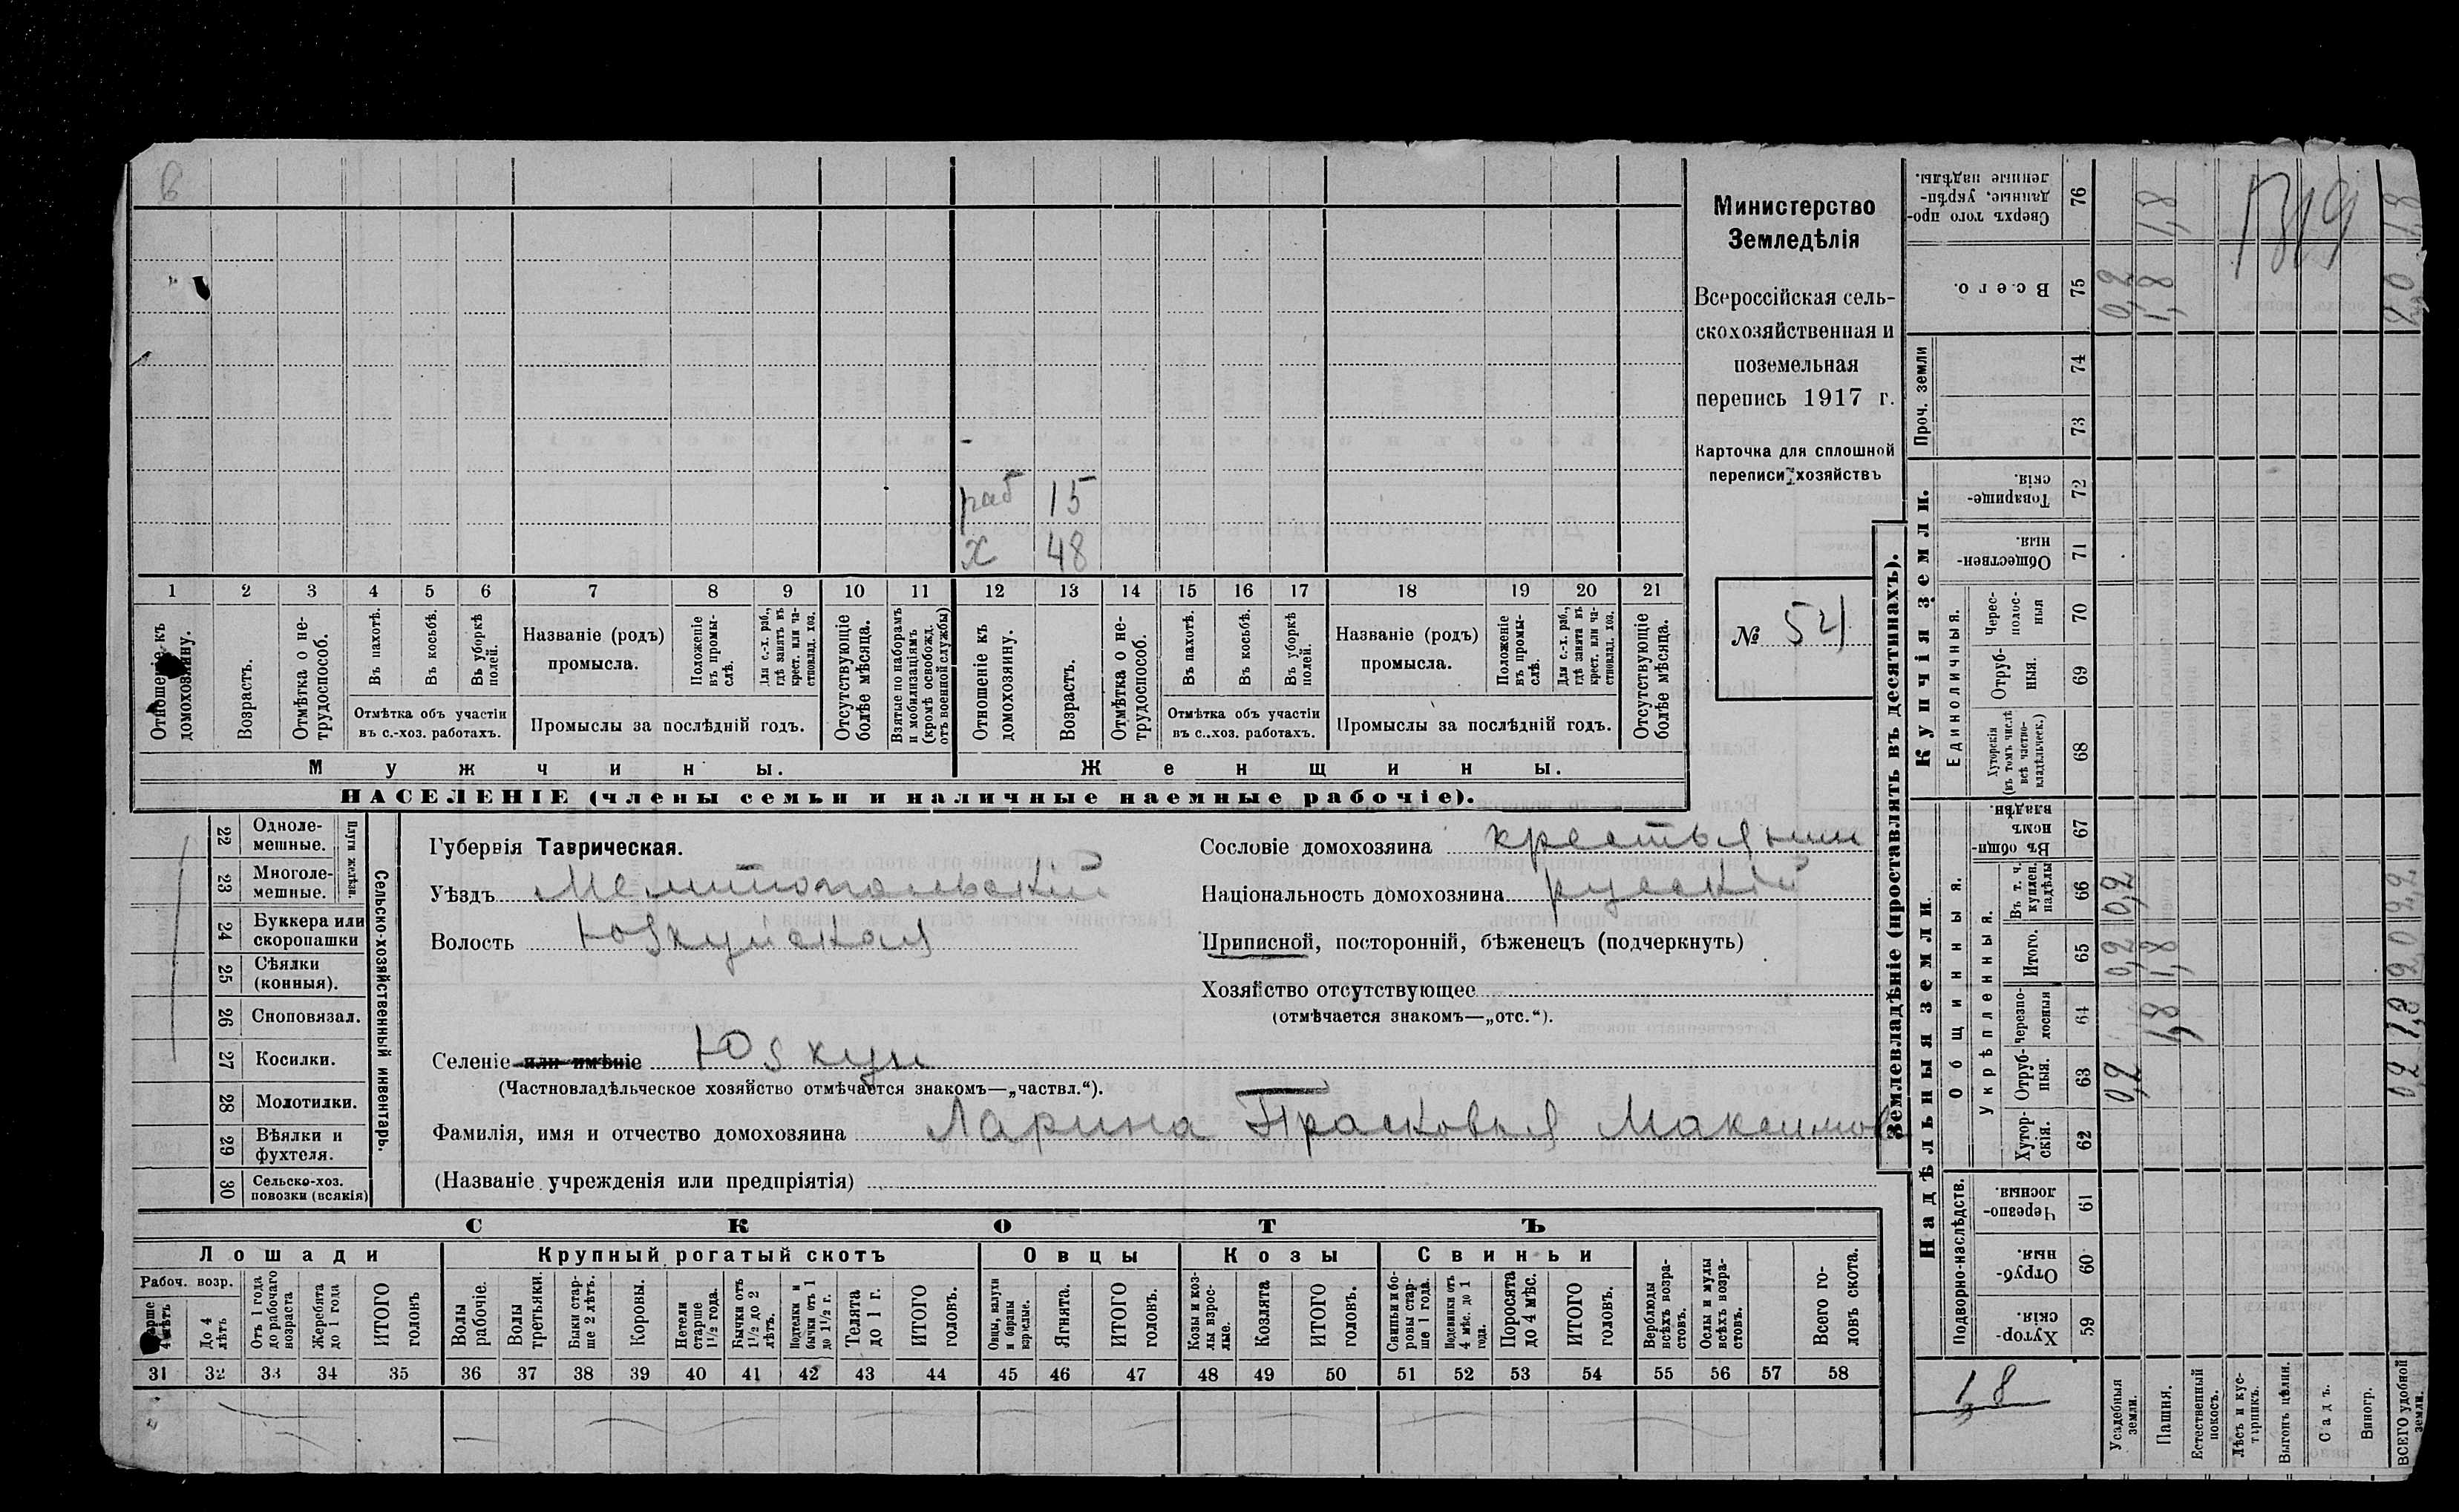 6
раб 15
х 48
1 2 3 4 5 6 7 8 9 10 11 12 13 14 15 16 17 18 19 20 21
Отношеніе къ домохозяину.
Возрастъ.
Отмѣтка о не-трудоспособ.
Въ пахотѣ.
Въ косьбѣ.
Въ уборкѣ полей.
Отмѣтка объ участіи
въ с.-хоз. работахъ.
Названіе (родъ)
промысла.
Положеніе въ промы-слѣ.
Для с.-х. раб., гдѣ занятъ въ крест. или ча-стновлад. хоз.
Промыслы за послѣдній годъ.
Отсутствующіе болѣе мѣсяца.
Взятые по наборамъ и мобилизаціямъ (кромѣ освобожд. отъ военной службы)
Отношеніе къ домохозяину.
Возрастъ.
Отмѣтка о не-трудоспособ.
Въ пахотѣ.
Въ косьбѣ.
Въ уборкѣ полей.
Отмѣтка объ участіи
въ с.-хоз. работахъ.
Названіе (родъ)
промысла.
Положеніе въ промы-слѣ.
Для с.-х. раб., гдѣ занята въ крест. или ча-стновлад. хоз.
Промыслы за послѣдній годъ.
Отсутствующіе болѣе мѣсяца.
Мужчины. Женщины.
НАСЕЛЕНІЕ (члены семьи и наличные наемные рабочіе).
Министерство
Земледѣлія
Всероссійская сель-
скохозяйственная и
поземельная
перепись 1917 г.
Карточка для сплошной
переписи хозяйствъ
№ 54
22 Одноле-мешные.
23 Многоле-мешные.
Плуги желѣзн.
24 Буккера или скоропашки
25 Сѣялки (конныя).
26 Сноповязал.
27 Косилки.
28 Молотилки.
29 Вѣялки и фухтеля.
30 Сельско-хоз. повозки (всякія)
Сельско-хозяйственный инвентарь.
Губернія Таврическая.
Уѣздъ Мелитопольскій
Волость Юзкуйская
Селеніе или имѣніе Юзкуи
(Частновладѣльческое хозяйство отмѣчается знакомъ—„частвл.“).
Фамилія, имя и отчество домохозяина Ларина Прасковья Максимов
(Названіе учрежденія или предпріятія)
Сословіе домохозяина крестьянин
Національность домохозяина русскій
Приписной, посторонній, бѣженецъ (подчеркнуть)
Хозяйство отсутствующее
(отмѣчается знакомъ—„отс.“).
СКОТЪ
Лошади Крупный рогатый скотъ Овцы Козы Свиньи
Рабоч. возр.
До 4 лѣтъ
Отъ 1 года до рабочаго возраста
Жеребята до 1 года
ИТОГО головъ
Волы рабочіе.
Волы третьяки.
Быки стар-ше 2 лѣтъ.
Коровы.
Нетели старше 1 1/2 года.
Бычки отъ 1 1/2 до 2 лѣтъ.
Подтелки и бычки отъ 1 до 1 1/2 г.
Телята до 1 г.
ИТОГО головъ.
Овцы, валухи и бараны взрослые.
Ягнята.
ИТОГО головъ.
Козы и коз-лы взрос-лые.
Козлята
ИТОГО головъ.
Свиньи и бо-ровы стар-ше 1 года.
Подсвинки отъ 4 мѣс. до 1 года.
Поросята до 4 мѣс.
ИТОГО головъ.
Верблюды всѣхъ возра-стовъ.
Ослы и мулы всѣхъ возра-стовъ.
Всего го-ловъ скота.
31 32 33 34 35 36 37 38 39 40 41 42 43 44 45 46 47 48 49 50 51 52 53 54 55 56 57 58
Землевладѣніе (проставлять въ десятинахъ).
Сверхъ того про-данные, укрѣп-ленные надѣлы. 76 1,8
Всего. 75 0,2 1,8 2,0
Проч. земли 74 73
Купчія земли.
Товарище-скія 72
Обществен-ныя 71
Единоличныя.
Черес-полос-ныя 70
Отруб-ныя. 69
Хуторскія (въ томъ числѣ всѣ частно-владѣльческ.) 68
Надѣльныя земли.
Общинныя.
Въ общи-номъ владѣн. 67
Укрѣпленныя.
Въ т. ч. куплен. надѣлы 66 0,2 0,2
Итого. 65 0,2 1,8 2,0
Черезпо-лосныя 64 1,8 1,8
Отруб-ныя. 63 0,2 0,2
Хутор-скія. 62
Подворно-наслѣдств.
Черезпо-лосныя. 61
Отруб-ныя. 60
Хутор-скія. 59
1,8
Усадебныя земли.
Пашня.
Естественный покосъ.
Лѣсъ и кус-тарникъ.
Выгонъ цѣлин.
Садъ.
Виногр.
ВСЕГО удобной земли.